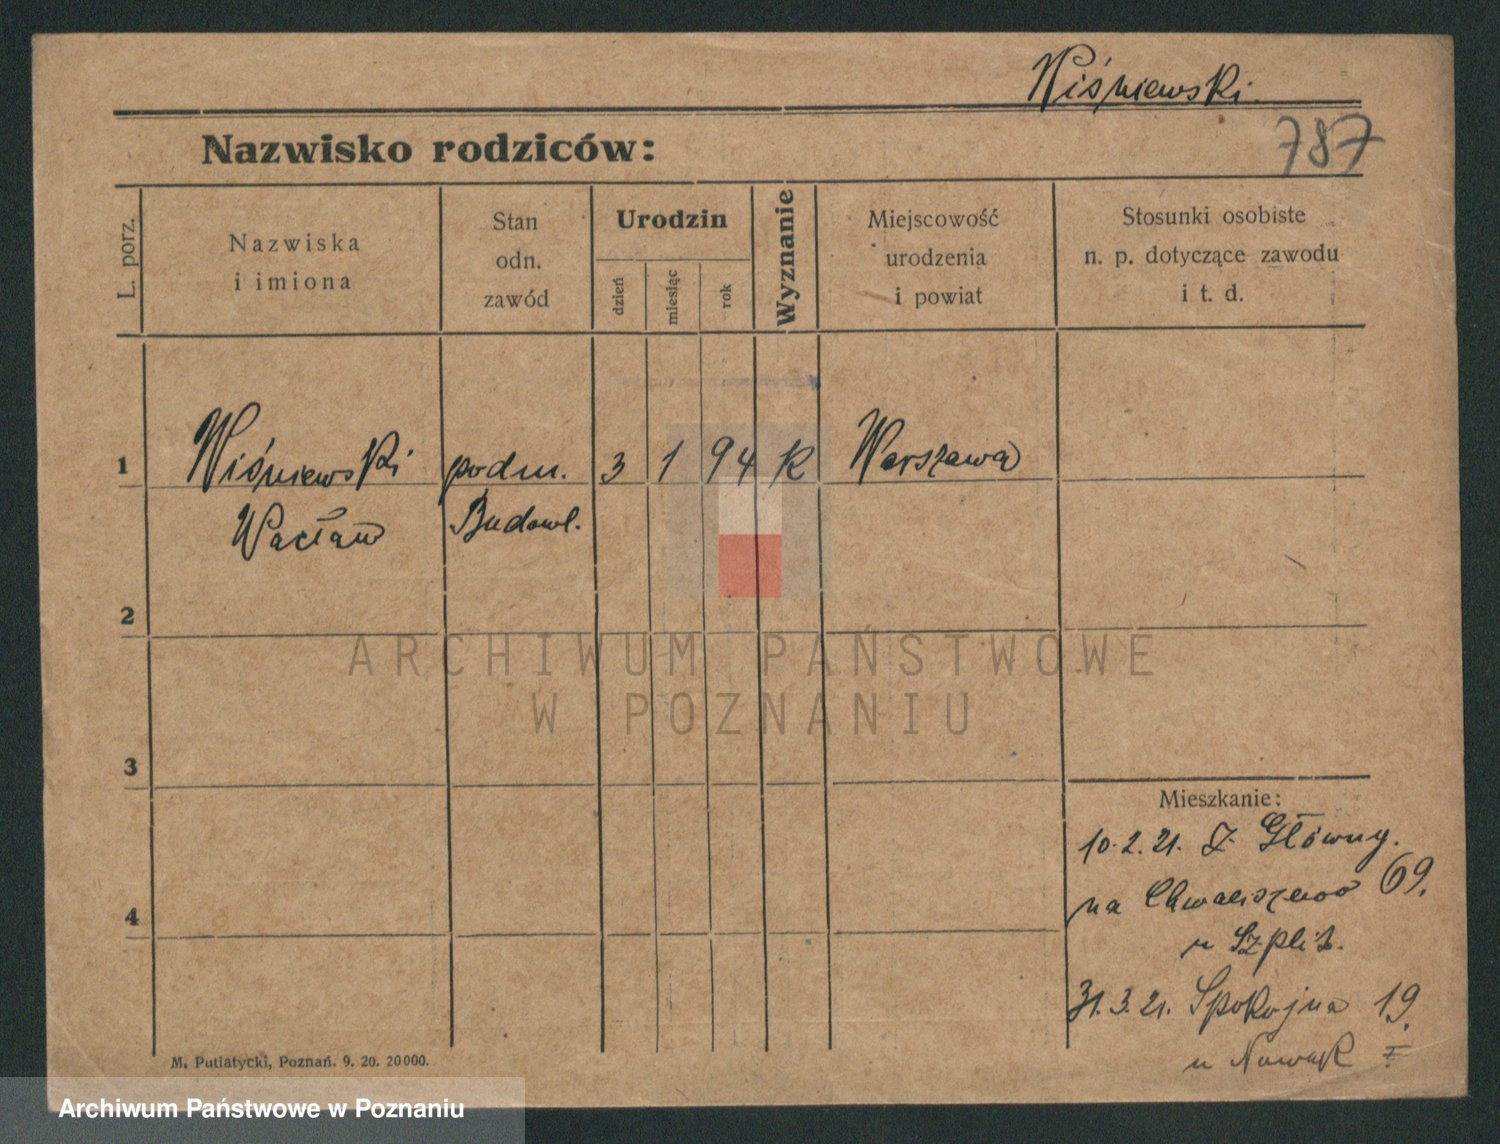 Wiśniewski.
787
Nazwisko rodziców:
L. porz.
Nazwiska
i imiona
Stan
odn.
zawód
Urodzin
dzień
miesiąc
rok
Wyznanie
Miejscowość
urodzenia
i powiat
Stosunki osobiste
n. p. dotyczące zawodu
i t. d.
1 Wiśniewski podm. 3 1 94 K Warszawa
Wacław Budowl.
2
3
4
ARCHIWUM PAŃSTWOWE
W POZNANIU
Mieszkanie:
10.2.21. Główny.
na Chwaliszewo 69.
u
31.3.21. Spokojna 19.
u Nowak I
M. Putiatycki, Poznań. 9. 20. 20000.
Archiwum Państwowe w Poznaniu